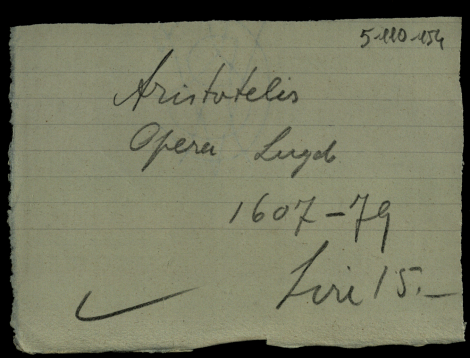 5-110-154
Aristotelis
Opera Lugd
1607-79
Lire 15.—